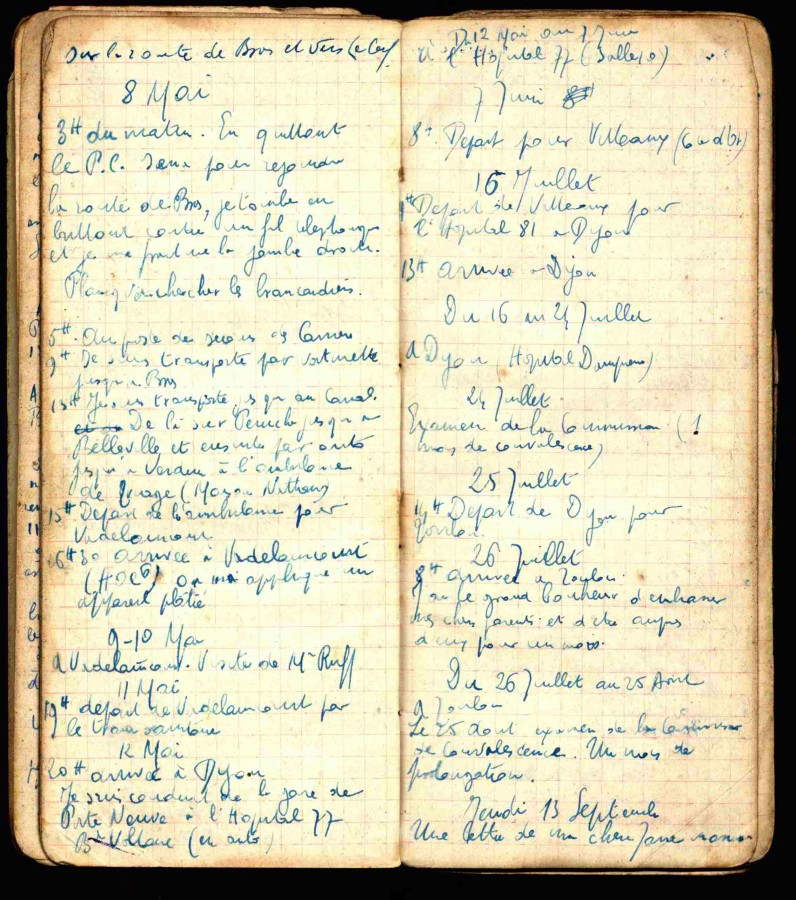 Sur la route de Bras et vers
8 Mai
3H du matin. En quittant
le P.C. pour rejoindre
la route de Bras, je tombe en
buttant contre un fil telephonique
et je me fracture la jambe droite.
va chercher les brancardiers.
5H. Au poste de secours des
9H Je suis transporté par voiturette
jusqu'a Bras
13H Je suis transporté jusqu'au Canal.
De là sur Peniche jusqu'a
Belleville et ensuite par auto
jusqu'a Verdun à l'ambulance
de triage (
15H Depart de l'ambulance pour
Vadelaincourt
16H30 arrivee à Vadelaincourt
(HOE6) On m'applique un
appareil platré
9-10 Mai
a Vadelaincourt. Visite de Mr Ruff
11 Mai
19H depart de Vadelaincourt par
le train sanitaire
12 Mai
20H arrivée à Dijon
Je suis conduit de la gare de
Porte Neuve à l'Hopital 77
Bd Voltaire (en auto)
Du 12 Mai au 7 Juin
a l'Hopital 77 (Salle
7 Juin
8H. Depart pour Villeaux (Cote d'Or)
16 Juillet
Depart de Villeaux pour
l'Hopital 81 a Dijon
13H arrivée a Dijon
Du 16 au 24 Juillet
a Dijon (Hopital
24 Juillet.
Examen de la Commission (1
mois de convalescence)
25 Juillet
Depart de Dijon pour
Toulon.
26 Juillet
8H arrivée a Toulon.
J'ai le grand bonheur d'embrasser
mes chers parents et d'etre aupres
d'eux pour un mois.
Du 26 Juillet au 25 Août
a Toulon
Le 25 aout examen de la Commission
de Convalescence. Un mois de
prolongation.
Jeudi 13 Septembre
Une lettre de mon cher